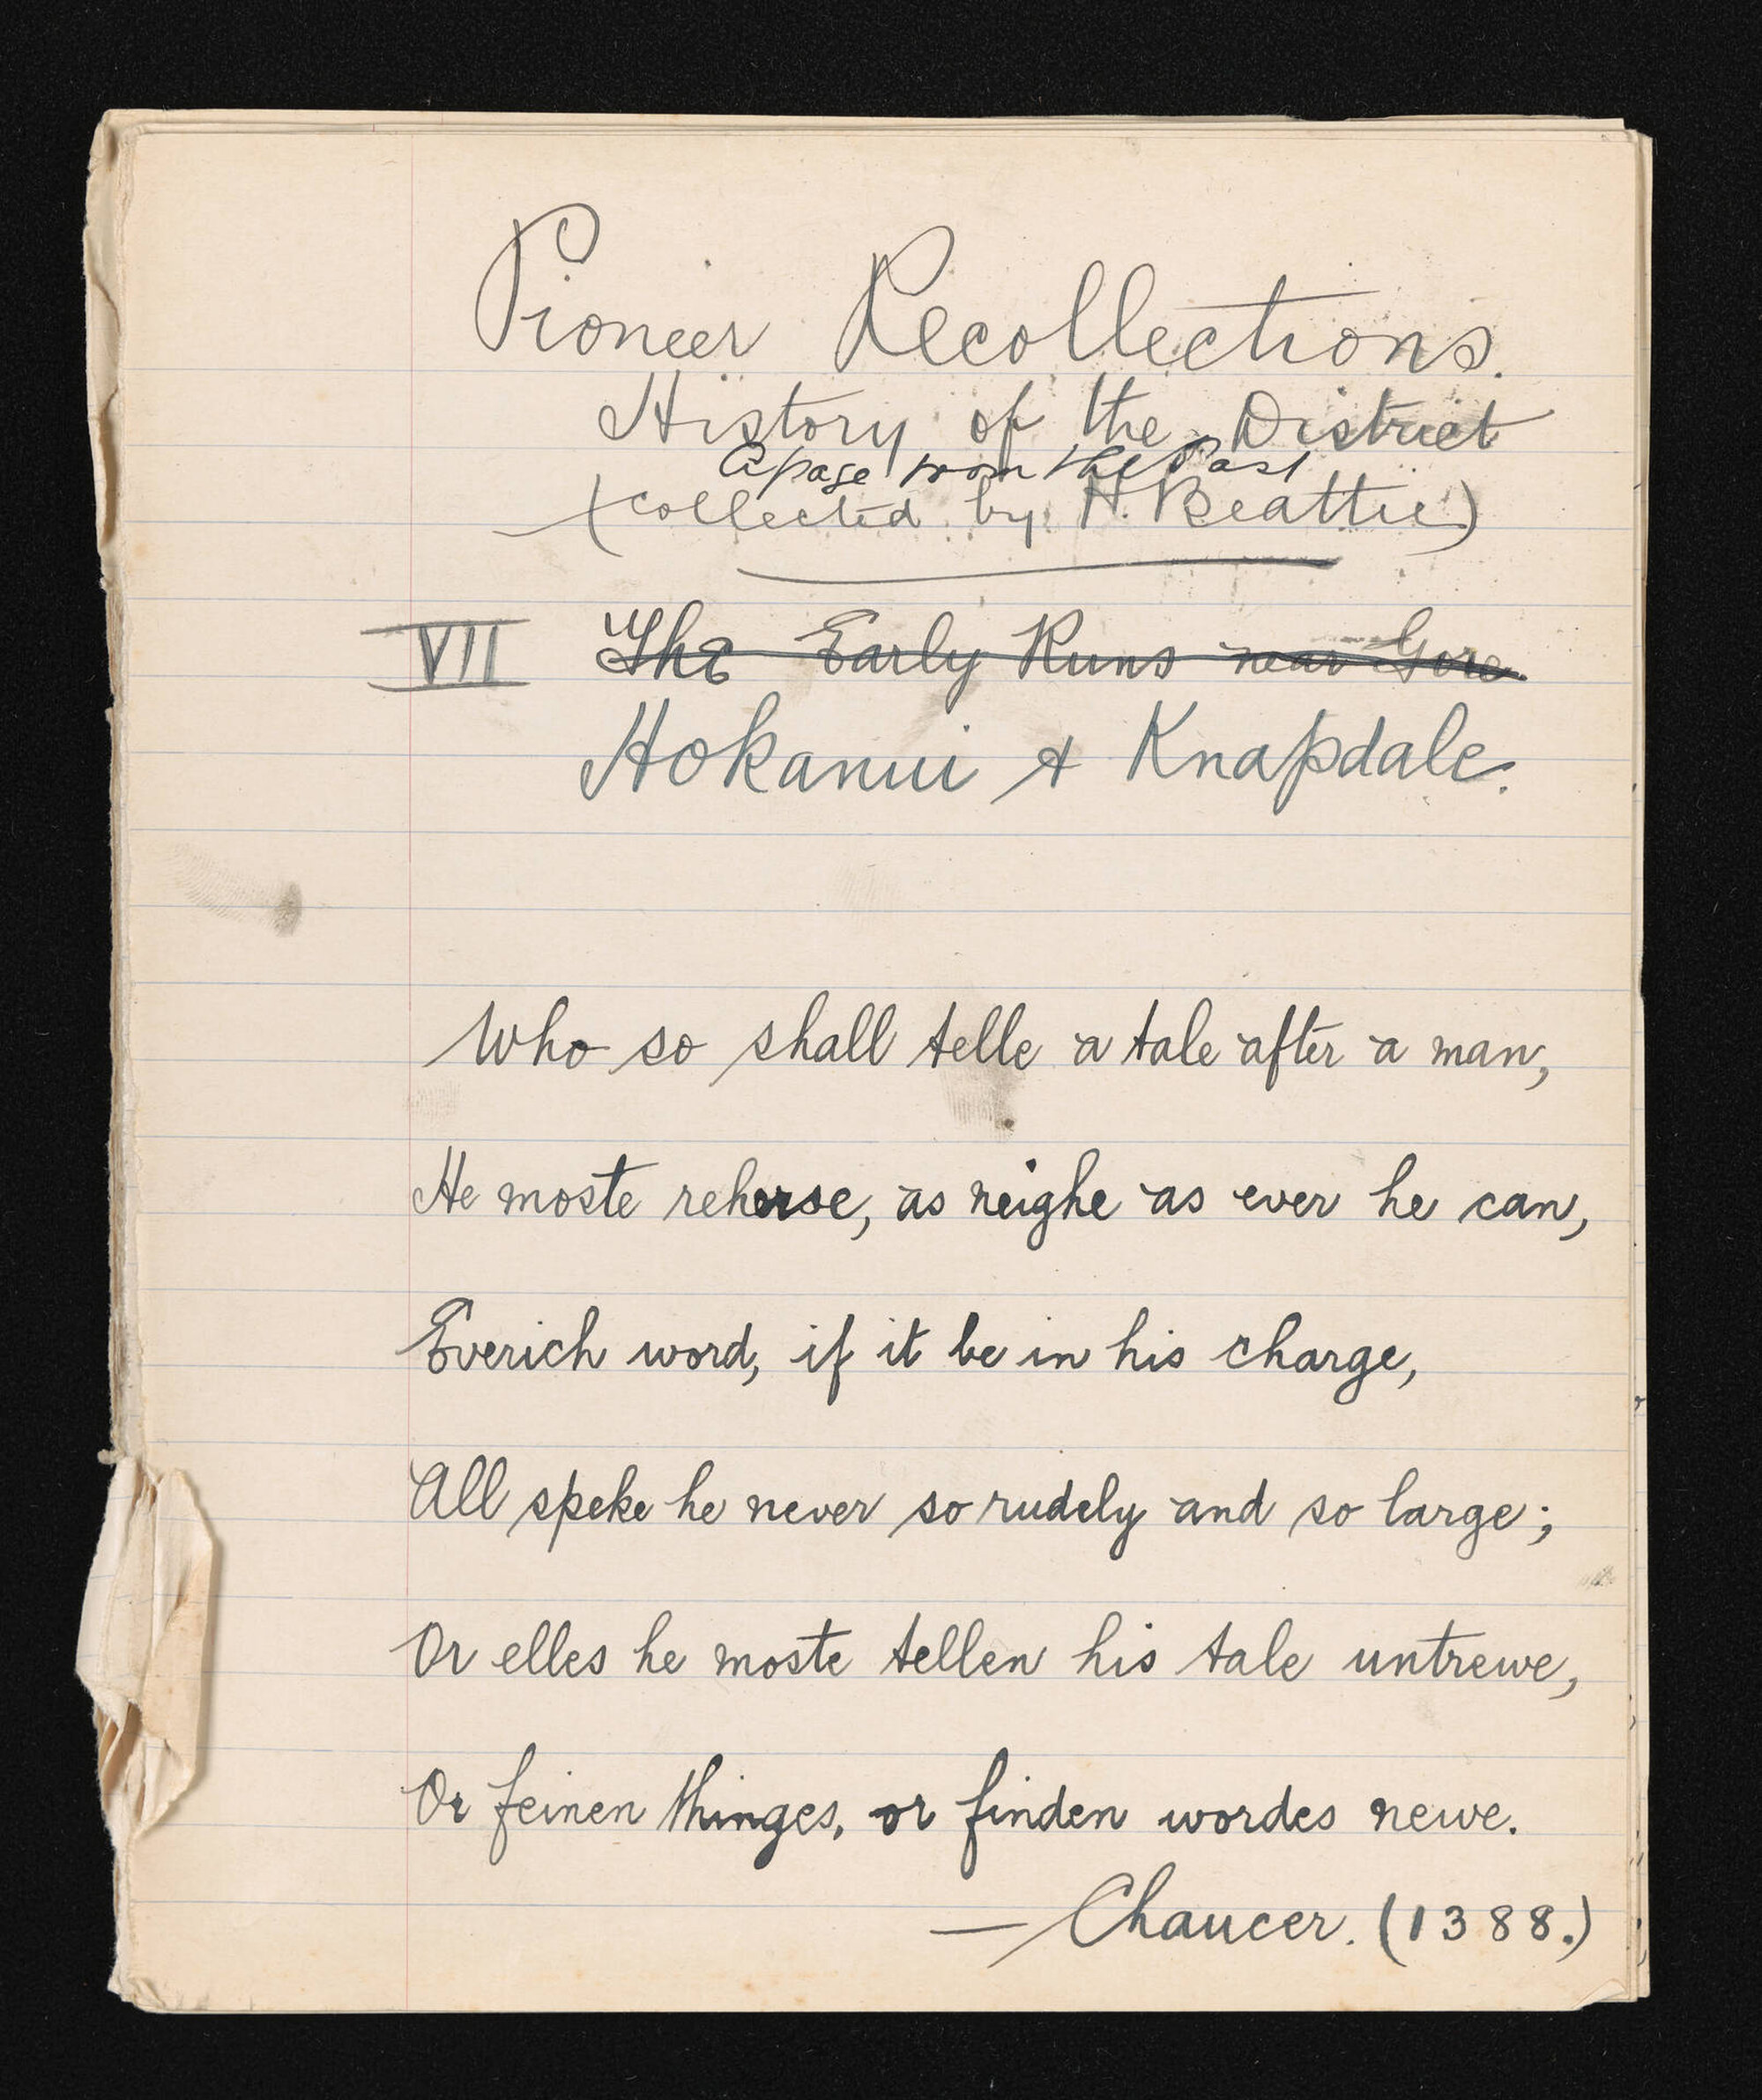 Pioneer Recollections.
History of the District
A page from the Past
(collected by H. Beattie)
VII The Early Runs near Gore.
Hokanui & Knapdale.
Who so shall telle a tale after a man,
He moste reherse, as neighe as ever he can,
Everich word, if it be in his charge,
All speke he never so rudely and so large;
Or elles he moste tellen his tale untrewe,
Or feinen thinges, or finden wordes newe.
— Chaucer. (1388.)